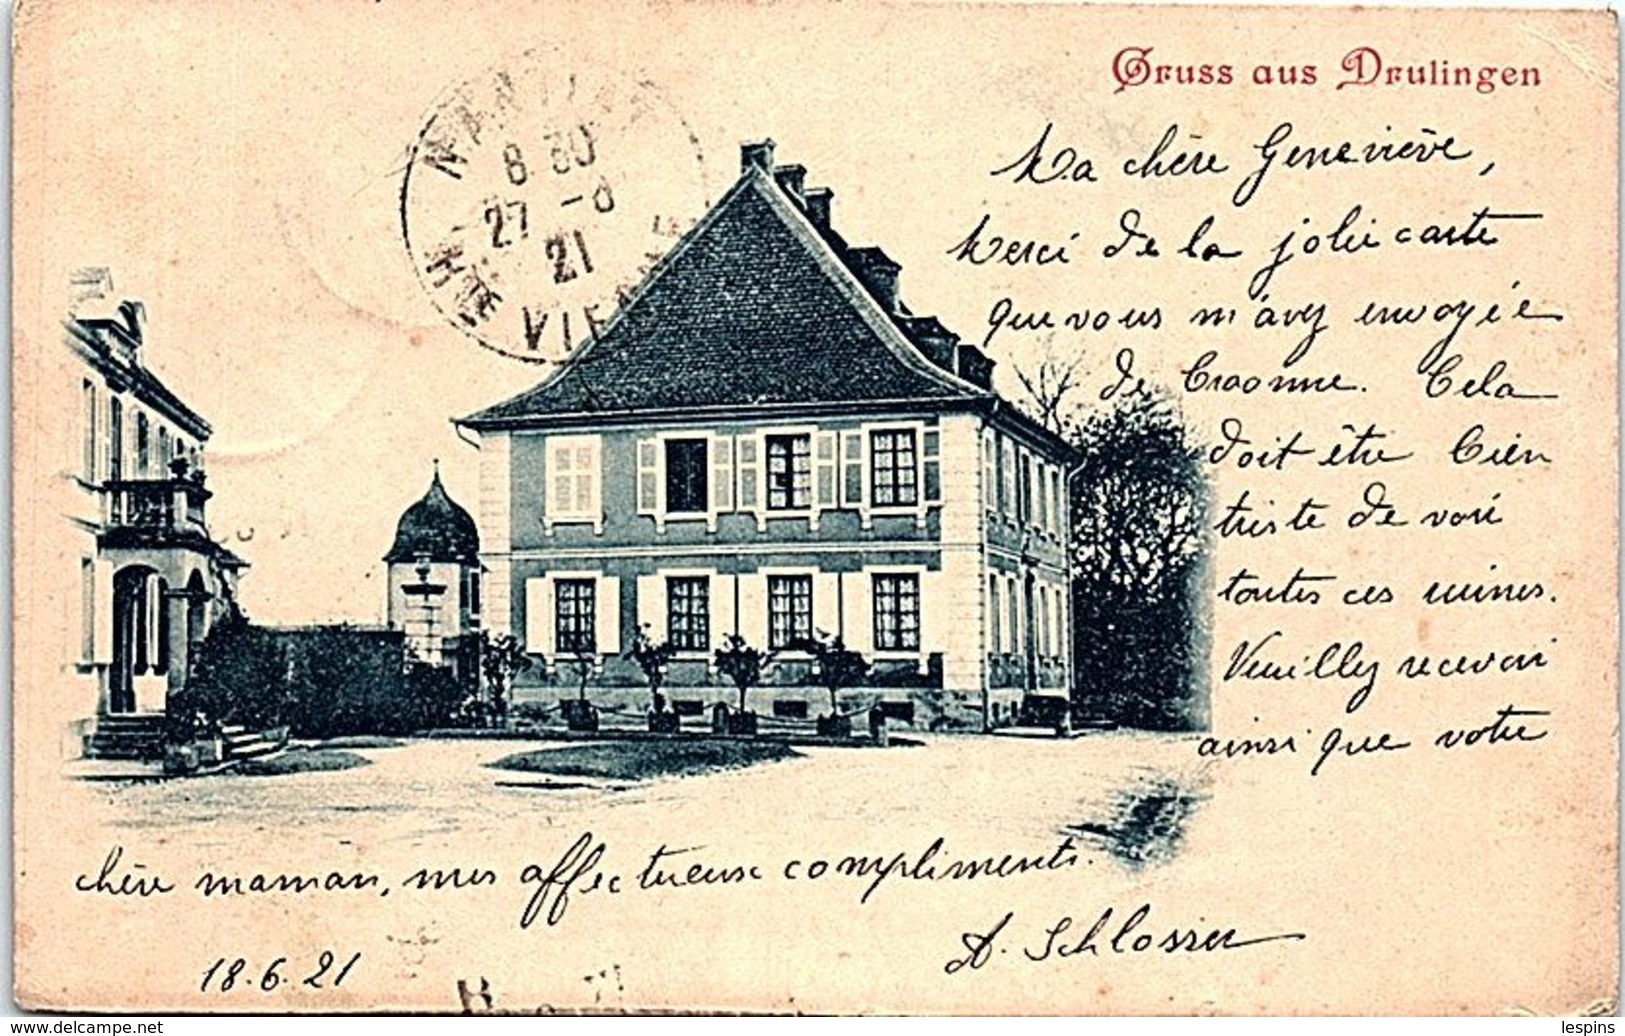 Gruss aus Drulingen
Ma chère Geneviève,
Merci de la jolie carte
que vous m'avez envoyée
de Craonne. Cela
doit être bien
triste de voir
toutes ces ruines.
Veuillez recevoir
ainsi que votre
chère maman, mes affectueux compliments.
A. Schlosser
18.6.21
NANTIAT
8 30
27 -6
21
HTE VIENNE
lespins